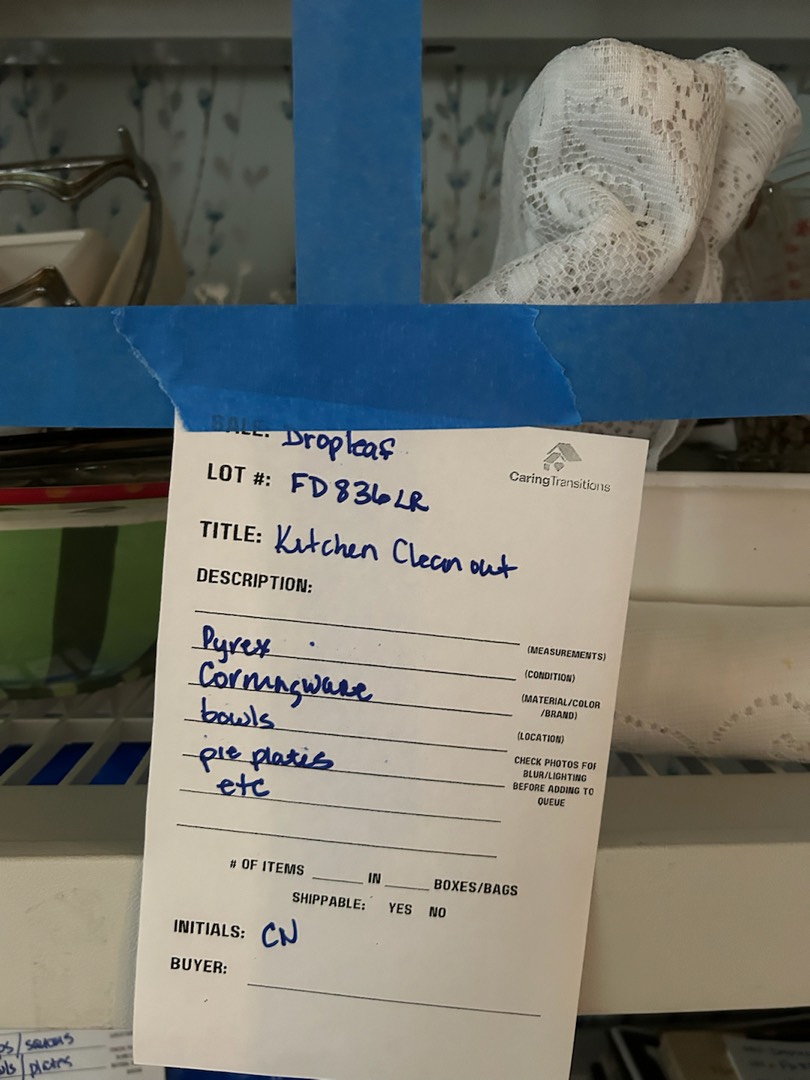 SALE: Dropleaf
CaringTransitions
LOT #: FD836LR
TITLE: Kitchen Clean out
DESCRIPTION:
(MEASUREMENTS)
Pyrex
(CONDITION)
Corningware
(MATERIAL/COLOR
/BRAND)
bowls
(LOCATION)
pie plates
CHECK PHOTOS FOR
BLUR/LIGHTING
BEFORE ADDING TO
QUEUE
etc
# OF ITEMS ____ IN ____ BOXES/BAGS
SHIPPABLE: YES NO
INITIALS: CN
BUYER:
plates